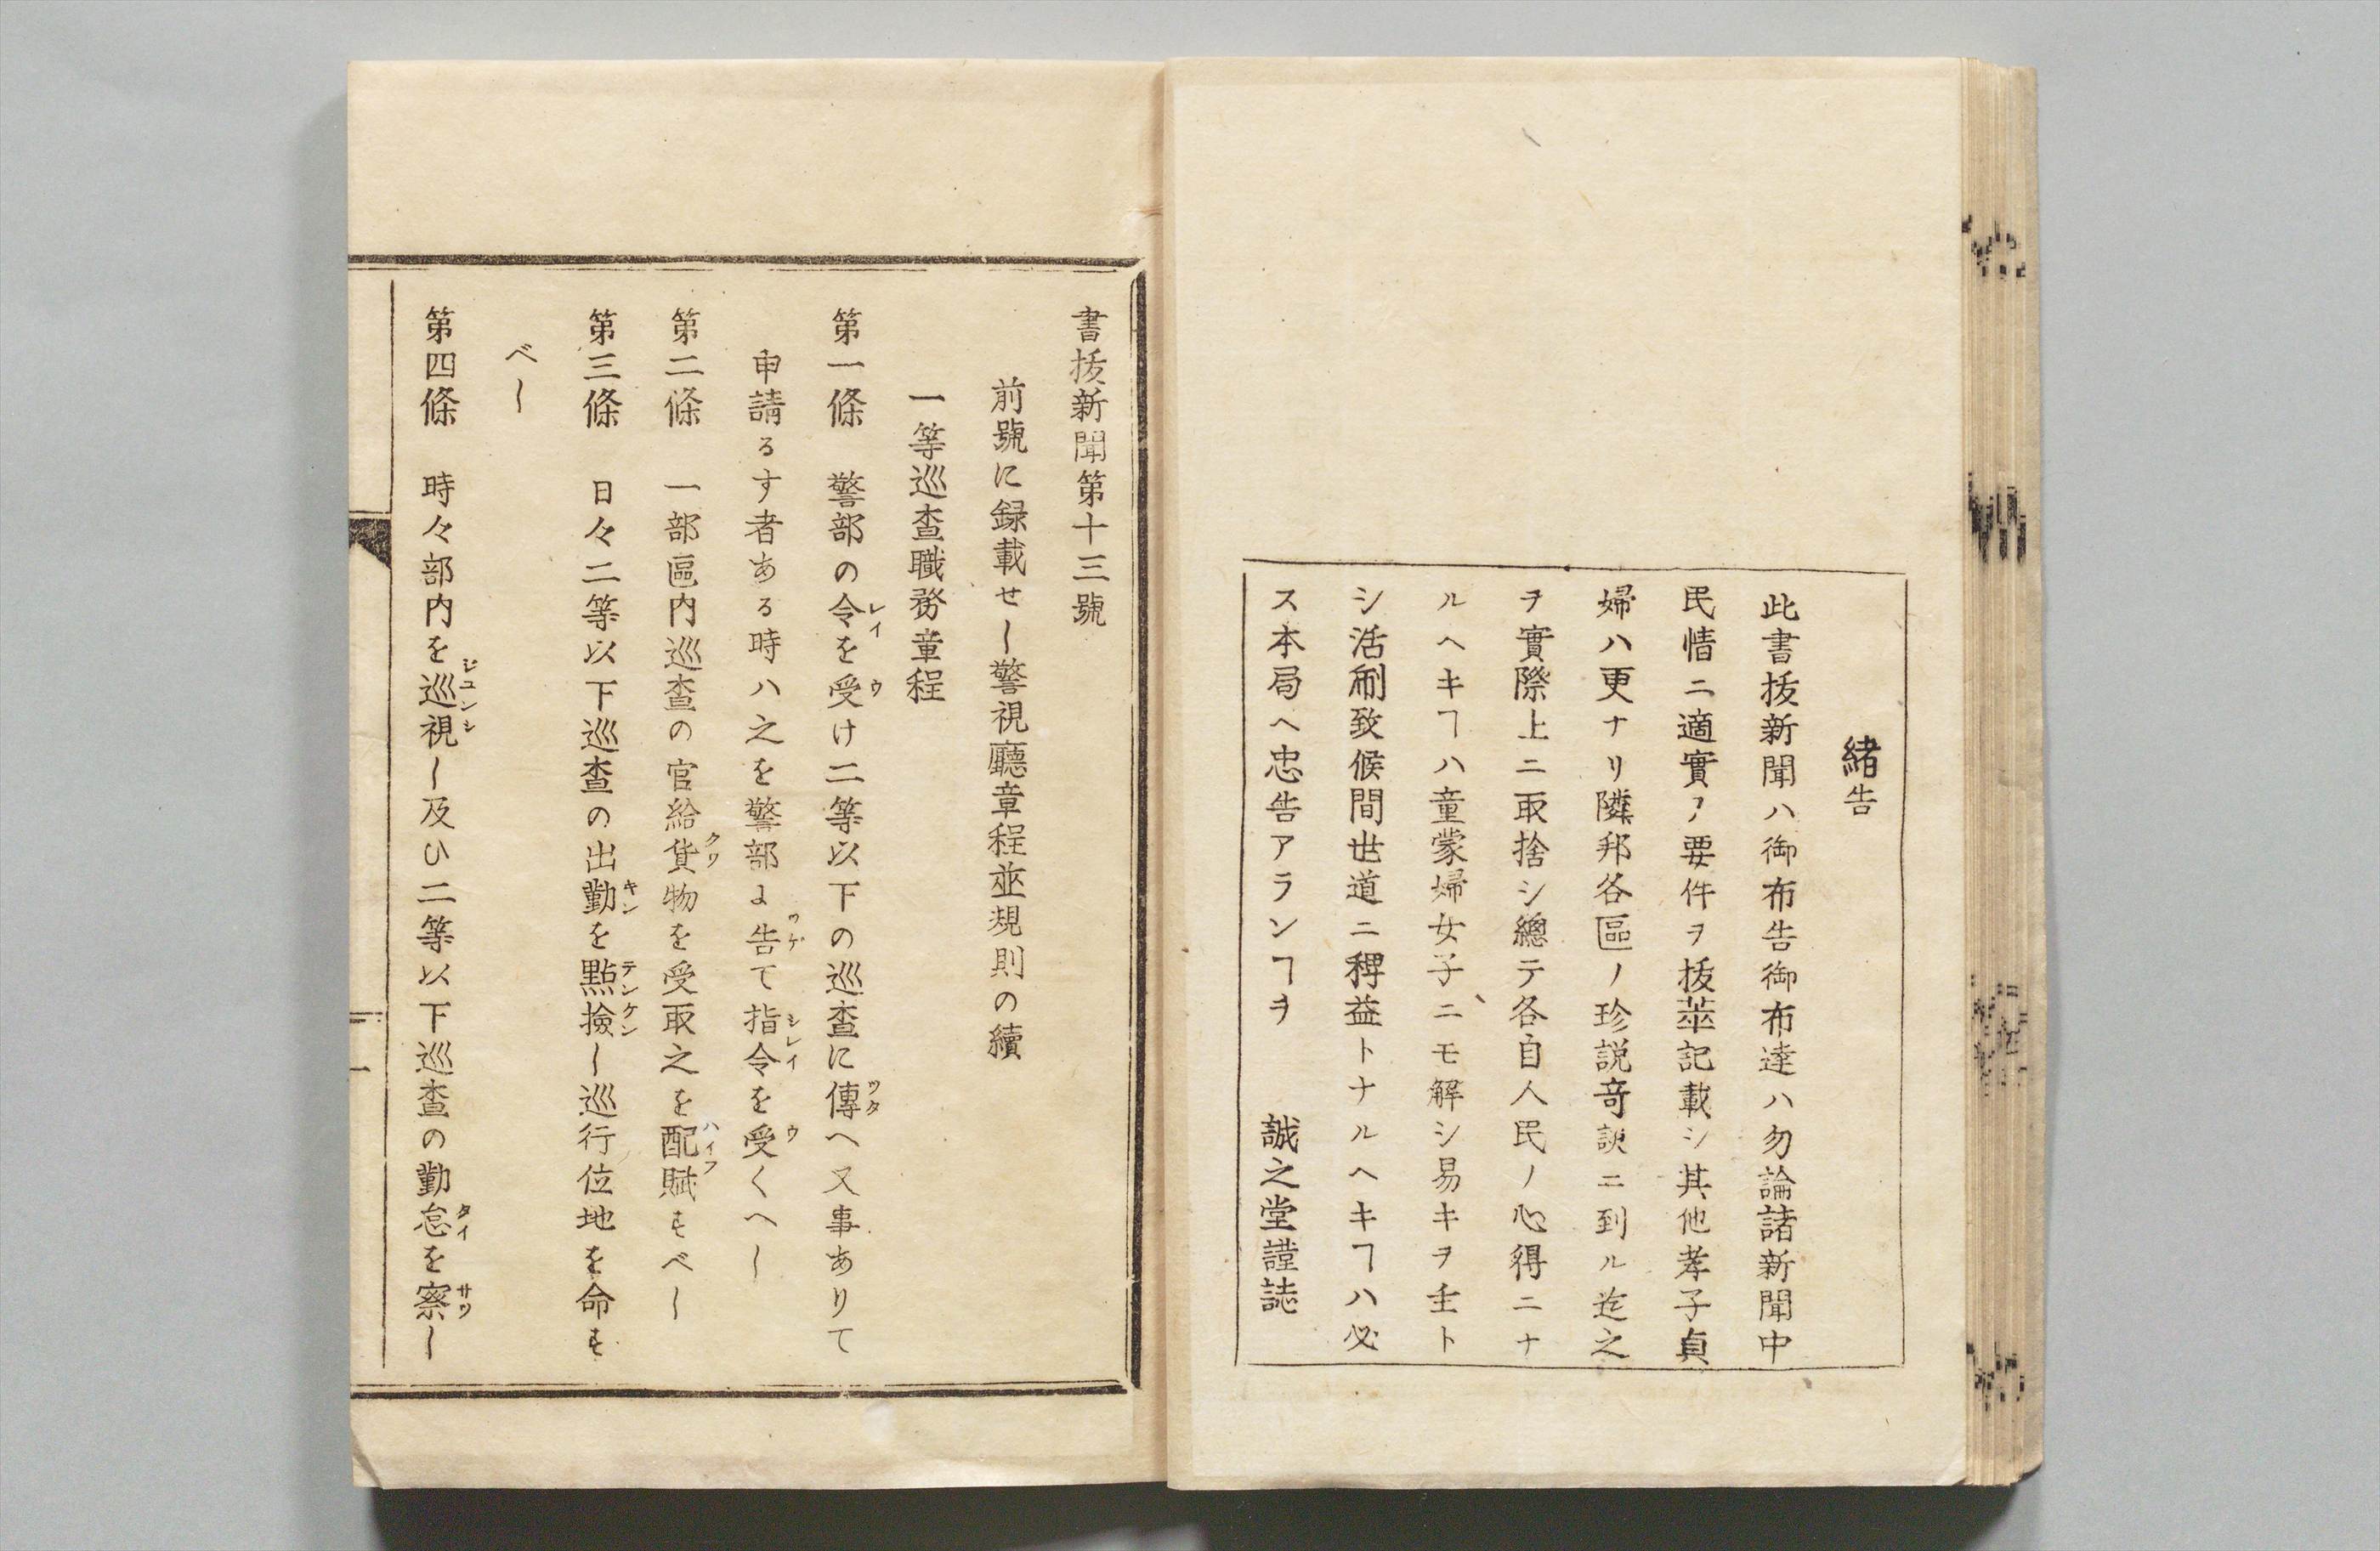 緒告
此書抜新聞ハ御布告御布達ハ勿論諸新聞中
民情ニ適實ノ要件ヲ抜萃記載シ其他孝子貞
婦ハ更ナリ隣邦各區ノ珍説竒談ニ到ル迄之
ヲ實際上ニ取捨シ總テ各自人民ノ心得ニナ
ルヘキヿハ童蒙婦女子ニモ解シ易キヲ主ト
シ活刷致候間世道ニ稗益トナルヘキヿハ必
ス本局ヘ忠告アランヿヲ 誠之堂謹誌
書抜新聞第十三號
前號に録載せし警視廳章程並規則の續
一等巡査職務章程
第一條 警部の令を受け二等以下の巡査に傳へ又事ありて
申請るす者ある時ハ之を警部よ告て指令を受くへし
第二條 一部區内巡査の官給貨物を受取之を配賦すべし
第三條 日々二等以下巡査の出勤を點撿し巡行位地を命す
べし
第四條 時々部内を巡視し及ひ二等以下巡査の勤怠を察し